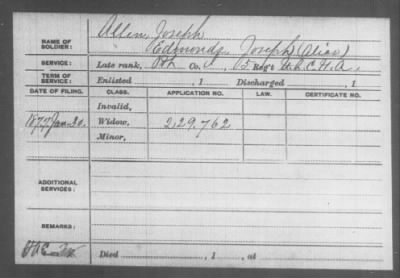 NAME OF SOLDIER: Allen, Joseph
Edmonds, Joseph (Alias)
SERVICE: Late rank, Pvt Co. C, 5 Reg't U.S.C.H.A.
TERM OF SERVICE: Enlisted , 1 Discharged , 1
DATE OF FILING. CLASS. APPLICATION NO. LAW. CERTIFICATE NO.
Invalid,
1877 Jan. 20. Widow, 229.762
Minor,
ADDITIONAL SERVICES:
REMARKS:
Died , 1 , at